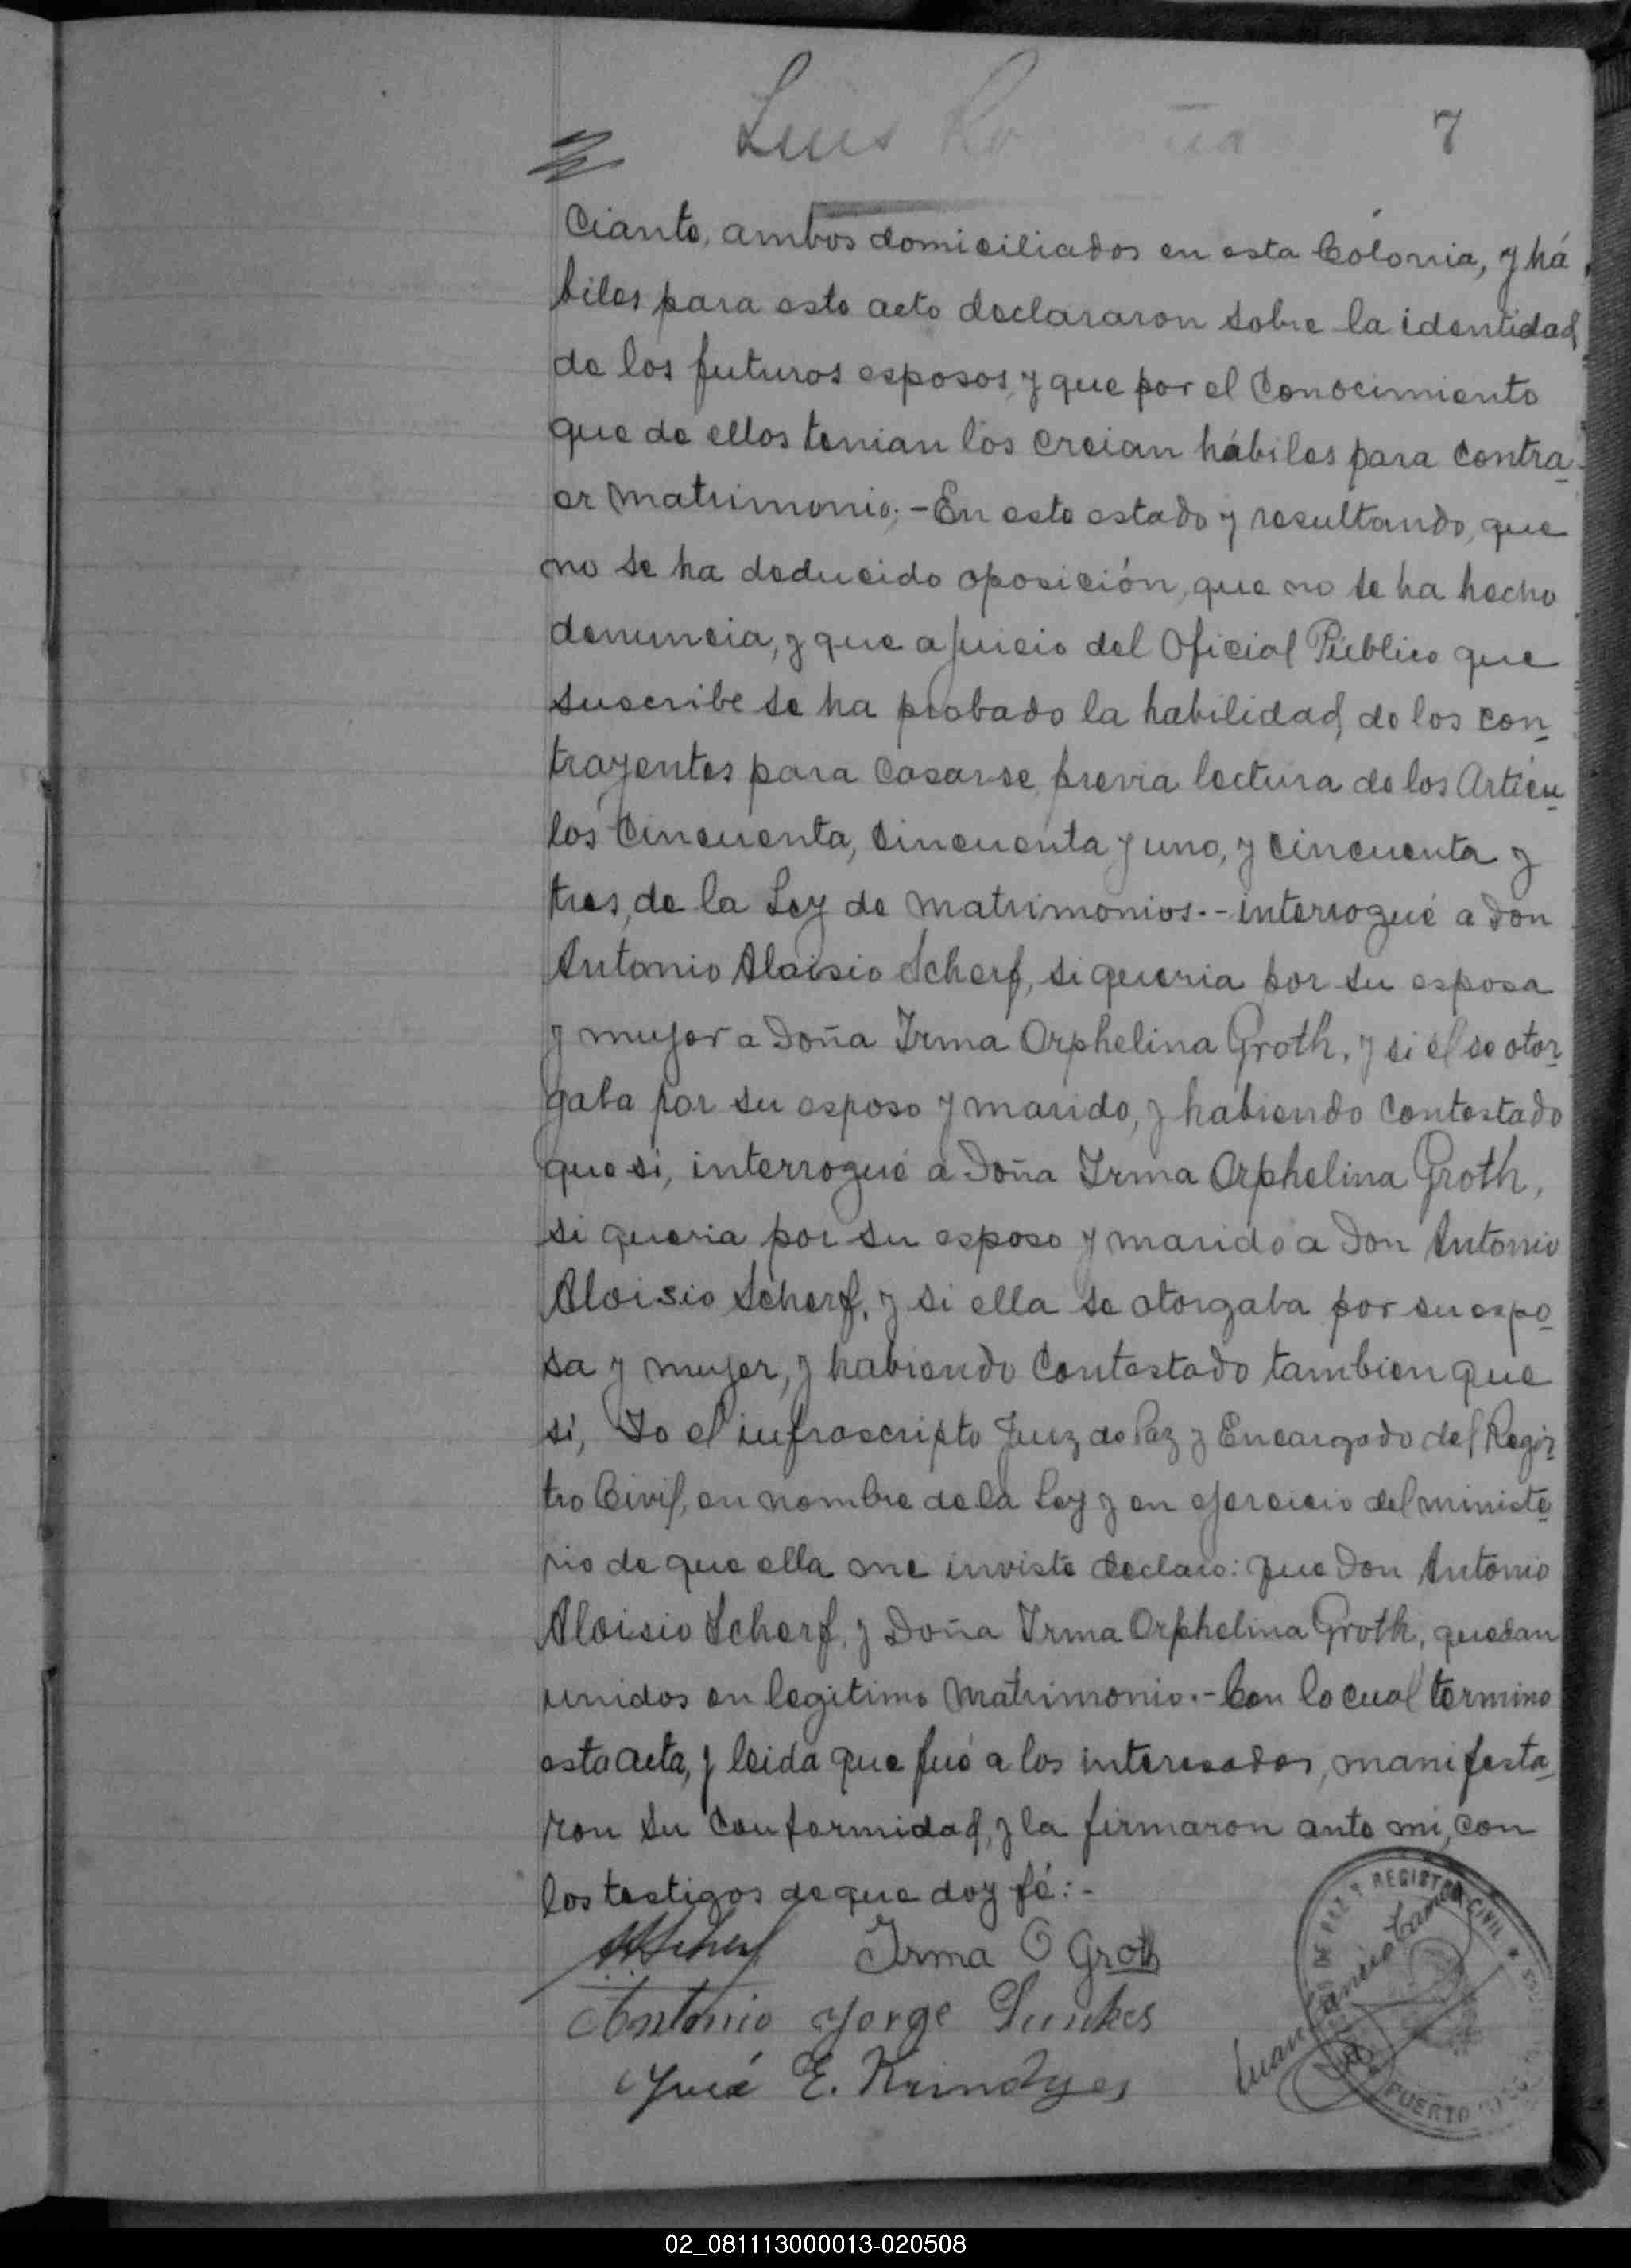 Luis
7
ciante, ambos domiciliados en esta Colonia, y há
biles para este acto declararon sobre la identidad
de los futuros esposos, y que por el conocimiento
que de ellos tenian los creian hábiles para contra-
er matrimonio.- En este estado y resultando, que
no se ha deducido oposición, que no se ha hecho
denuncia, y que a juicio del Oficial Público que
suscribe se ha probado la habilidad, de los con-
trayentes para casarse, previa lectura de los Artícu-
los cincuenta, cincuenta y uno, y cincuenta y
tres, de la Ley de matrimonios.- interrogué a don
Antonio Aloisio Scherf, si queria por su esposa
y mujer a Doña Irma Orphelina Groth, y si él se otor-
gaba por su esposo y marido, y habiendo contestado
que si, interrogué a Doña Irma Orphelina Groth,
si queria por su esposo y marido a Don Antonio
Aloisio Scherf, y si ella se otorgaba por su espo-
sa y mujer, y habiendo contestado tambien que
si, Yo el infrascripto Juez de Paz y Encargado del Regis-
tro Civil, en nombre de la Ley y en ejercicio del ministe-
rio de que ella me inviste declaro: que Don Antonio
Aloisio Scherf, y Doña Irma Orphelina Groth, quedan
unidos en legitimo matrimonio.- Con lo cual termino
esta acta, y leida que fué a los interesados, manifesta-
ron su conformidad, y la firmaron ante mi, con
los testigos de que doy fé:-
AScherf Irma O Groth
Antonio Jorge
José E.
DE PAZ Y REGISTRO CIVIL
PUERTO
02_081113000013-020508